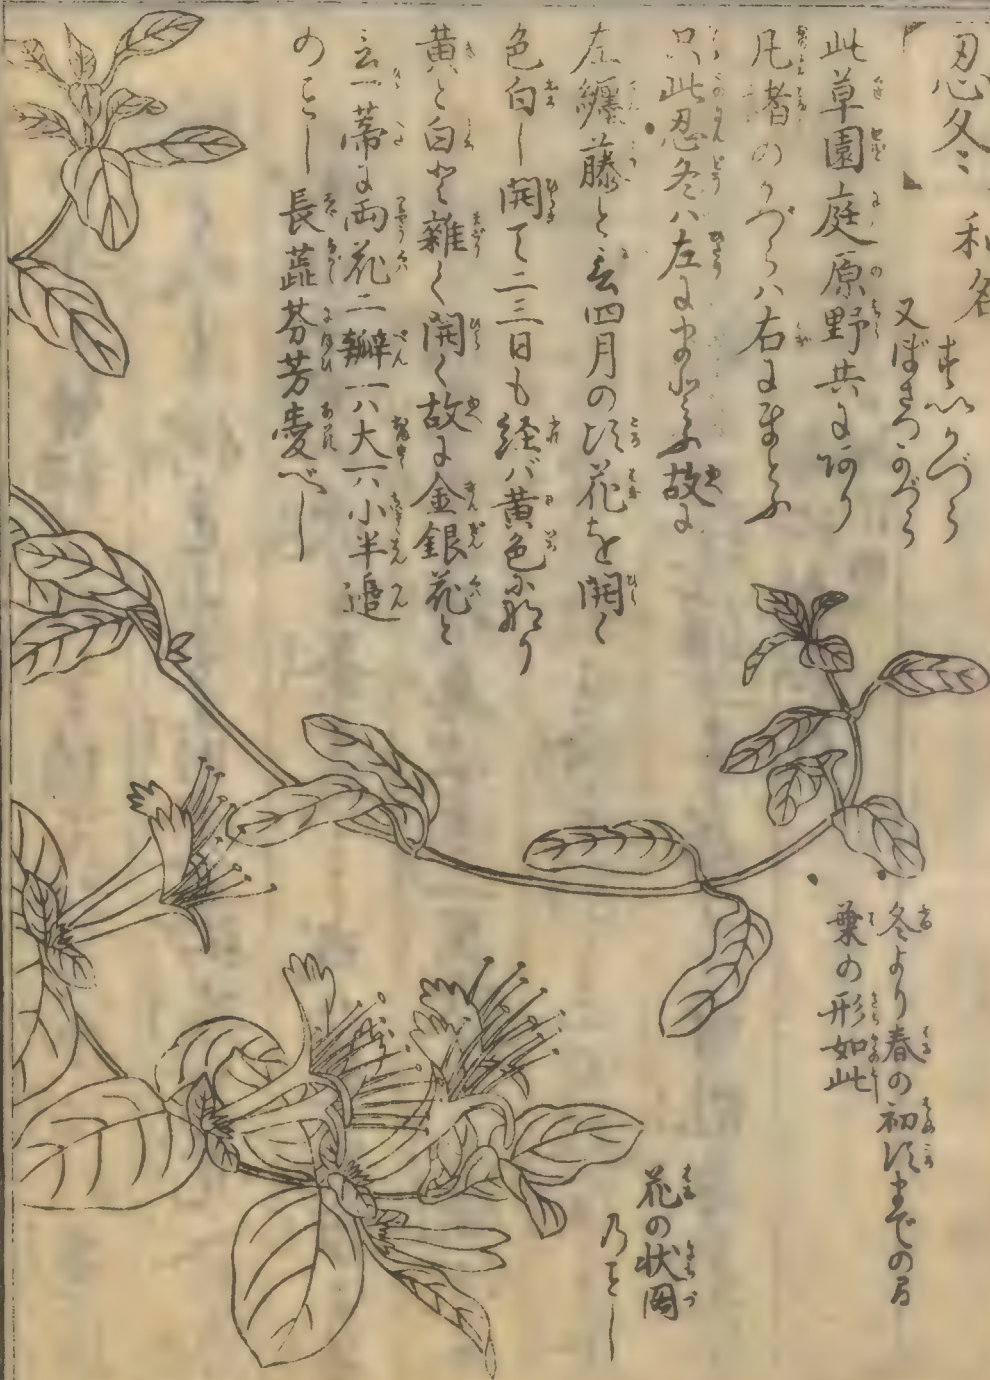 忍冬 和名 すいかづら
又ぼさつかづら
此草園庭原野共に阿り
凡諸のかづらハ右にまとふ
只此忍冬ハ左にまとふ故に
左纏藤と云四月の頃花を開く
色白し開て二三日も経バ黄色に成り
黄と白と雑く開く故に金銀花と
云一蒂に両花二瓣一ハ大一ハ小半邉
のごとし 長蕋芬芳愛べし
冬より春の初頃までの間
葉の形如此
花の状図
のごとし